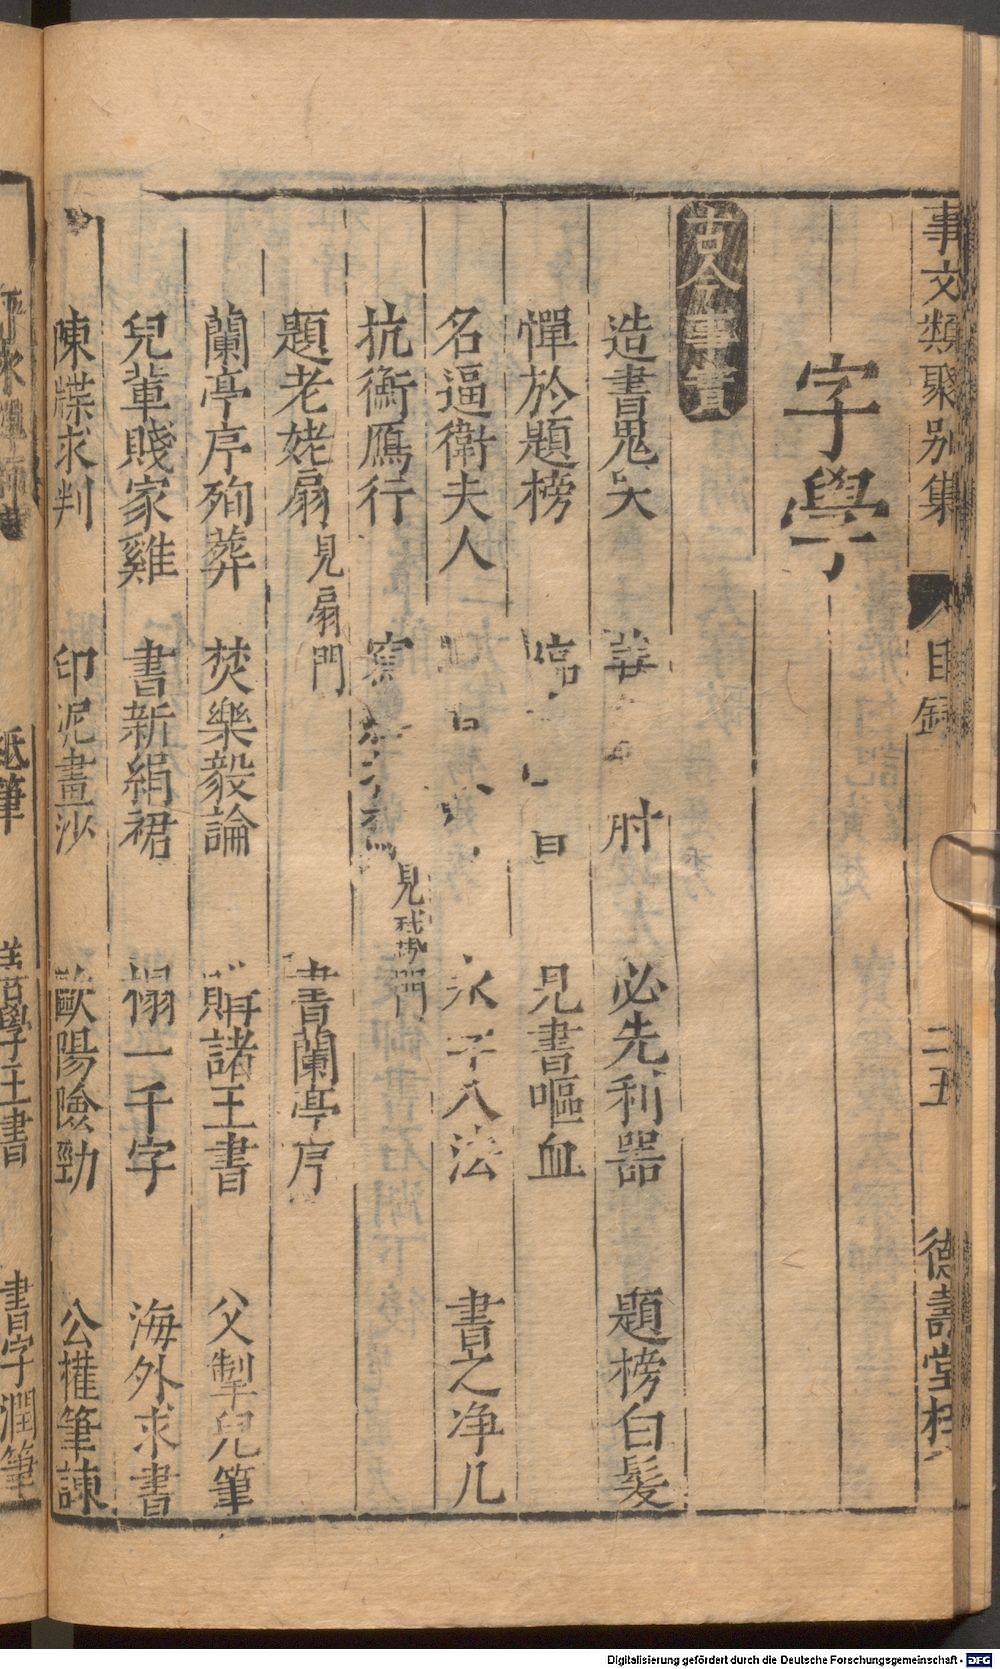 事文類聚別集 目錄 二五 德壽堂梓
字學
古今事實
造書鬼哭 肘 必先利器 題榜白髮
憚於題榜 臨 見書嘔血
名逼衛夫人 永字八法 書之凈几
抗衡鴈行 寫 見 門
題老姥扇見扇門 書蘭亭序
蘭亭序殉葬 焚樂毅論 購諸王書 父掣兒筆
兒輩賤家雞 書新絹裙 搨一千字 海外求書
陳牒求判 印泥畫沙 歐陽險勁 公權筆諫
紙筆 善學王書 書字潤筆
Digitalisierung gefördert durch die Deutsche Forschungsgemeinschaft - DFG